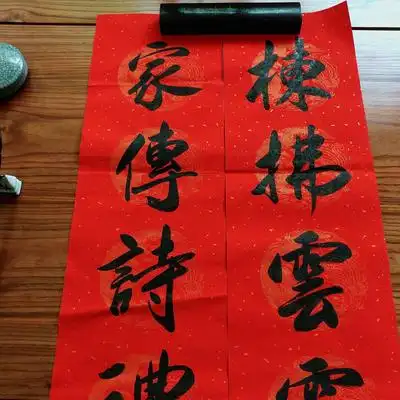 棟拂雲
家傳詩禮